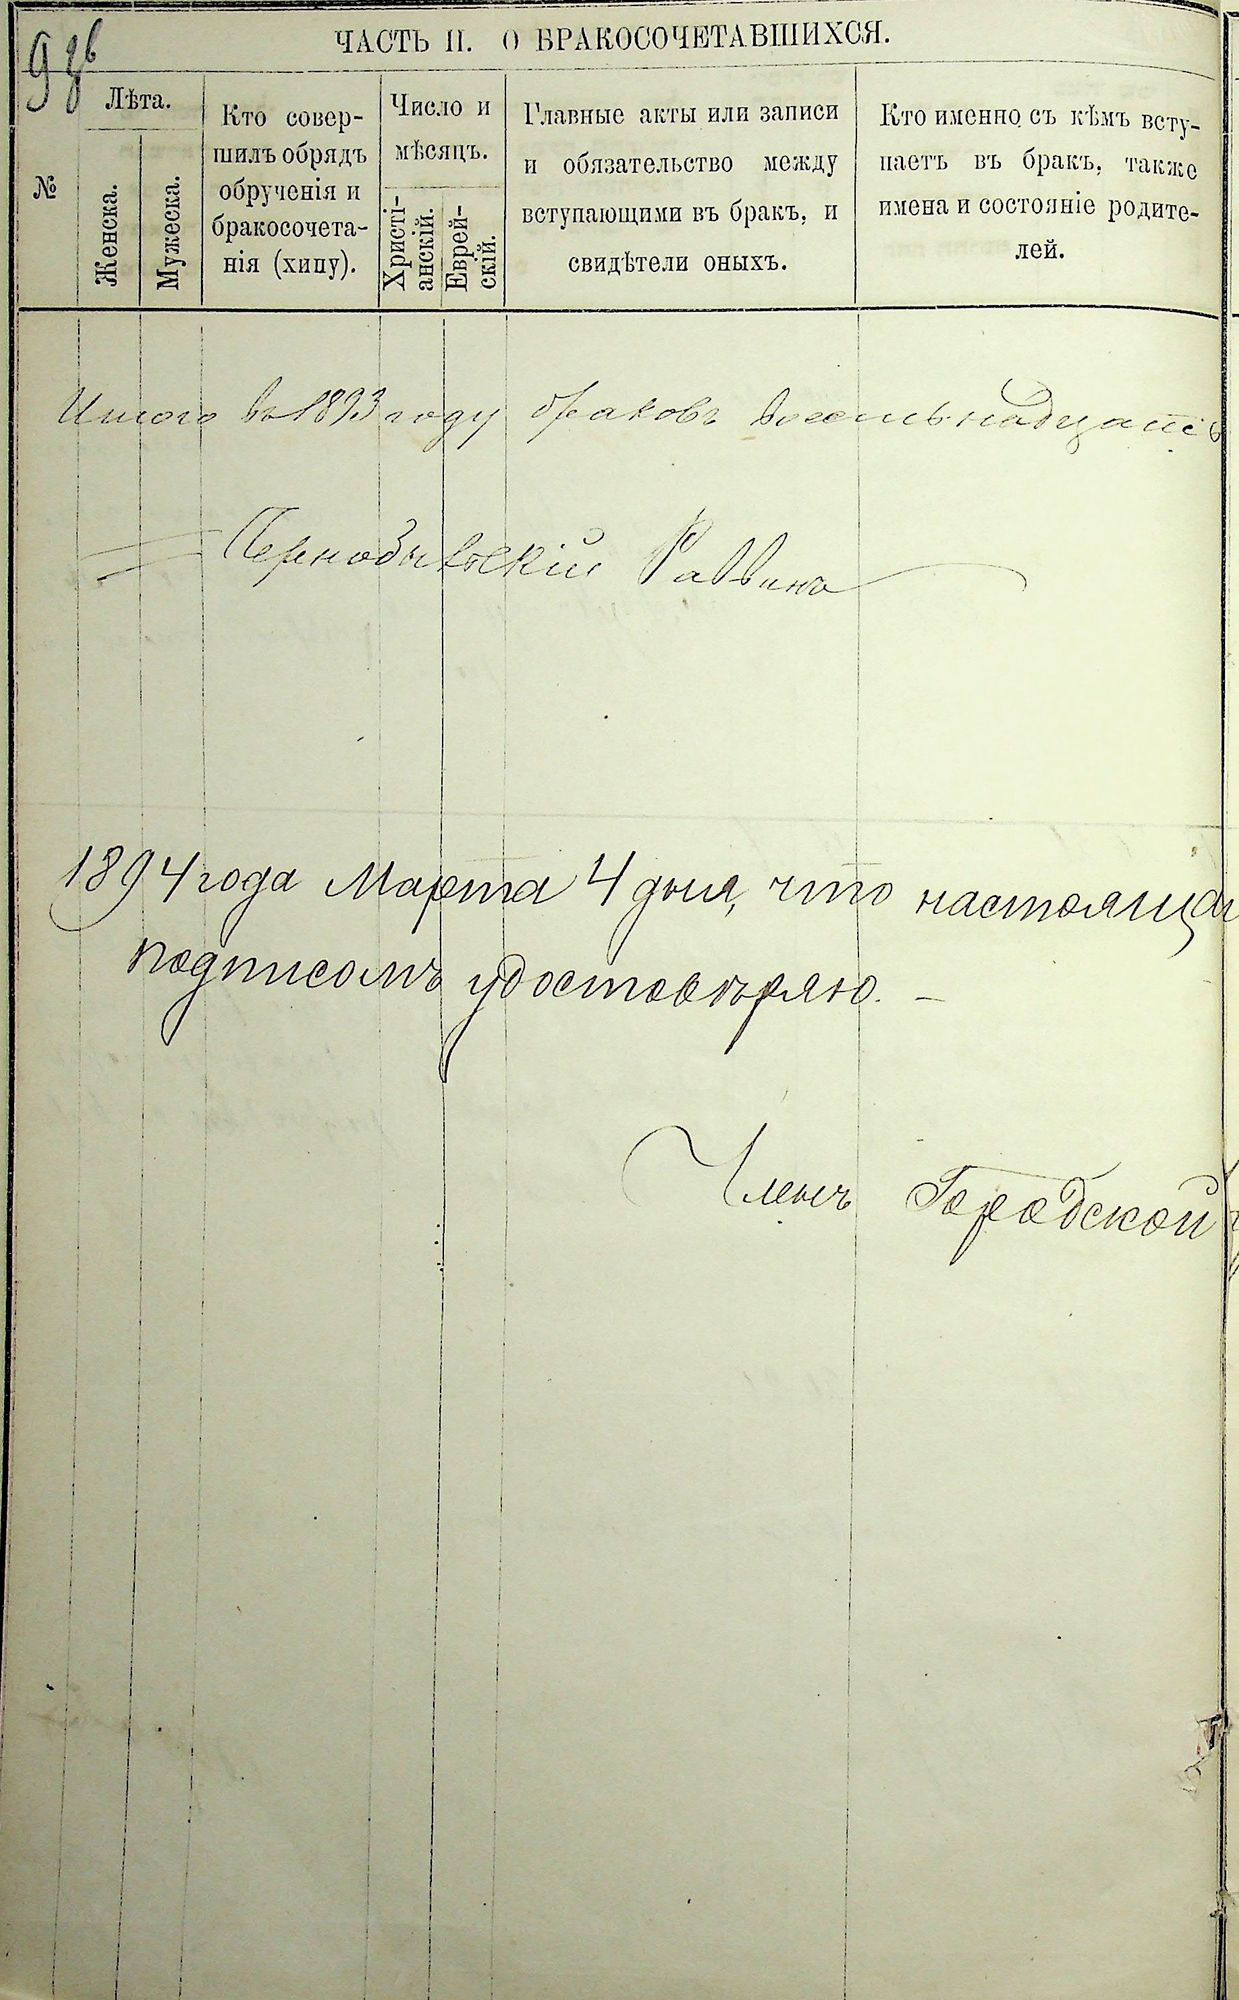 ЧАСТЬ II. О БРАКОСОЧЕТАВШИХСЯ.
№
Лѣта.
Женска.
Мужеска.
Кто совер-
шилъ обрядъ
обрученія и
бракосочета-
нія (хипу).
Число и
мѣсяцъ.
Христі-
анскій.
Еврей-
скій.
Главные акты или записи
и обязательство между
вступающими въ бракъ, и
свидѣтели оныхъ.
Кто именно съ кѣмъ всту-
паетъ въ бракъ, также
имена и состояніе родите-
лей.
Итого въ 1893 году браковъ восемьнадцать
Чернобыльскій Раввинъ
1894 года Марта 4 дня, что настояща
подписомъ удостовѣряю. —
Членъ Городской